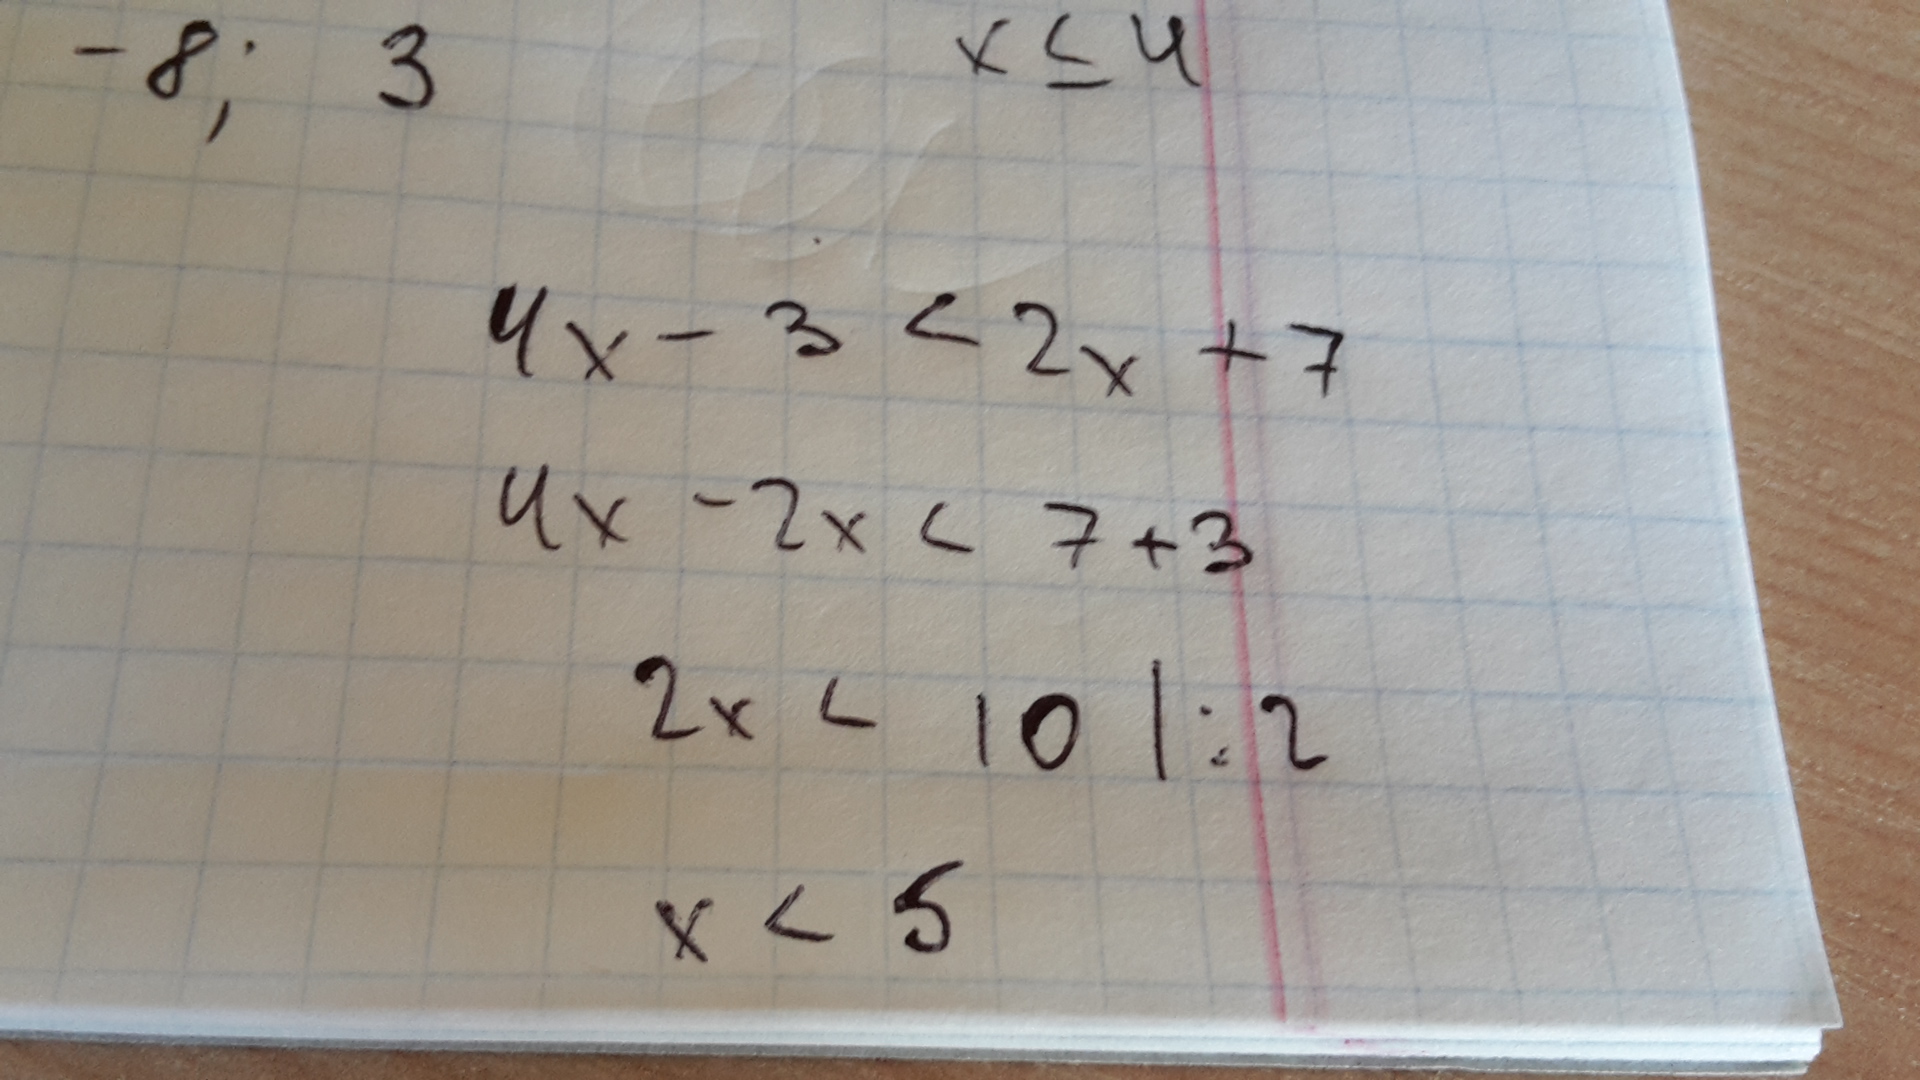 -8; 3 x ≤ 4
4x - 3 < 2x + 7
4x - 2x < 7 + 3
2x < 10 |:2
x < 5